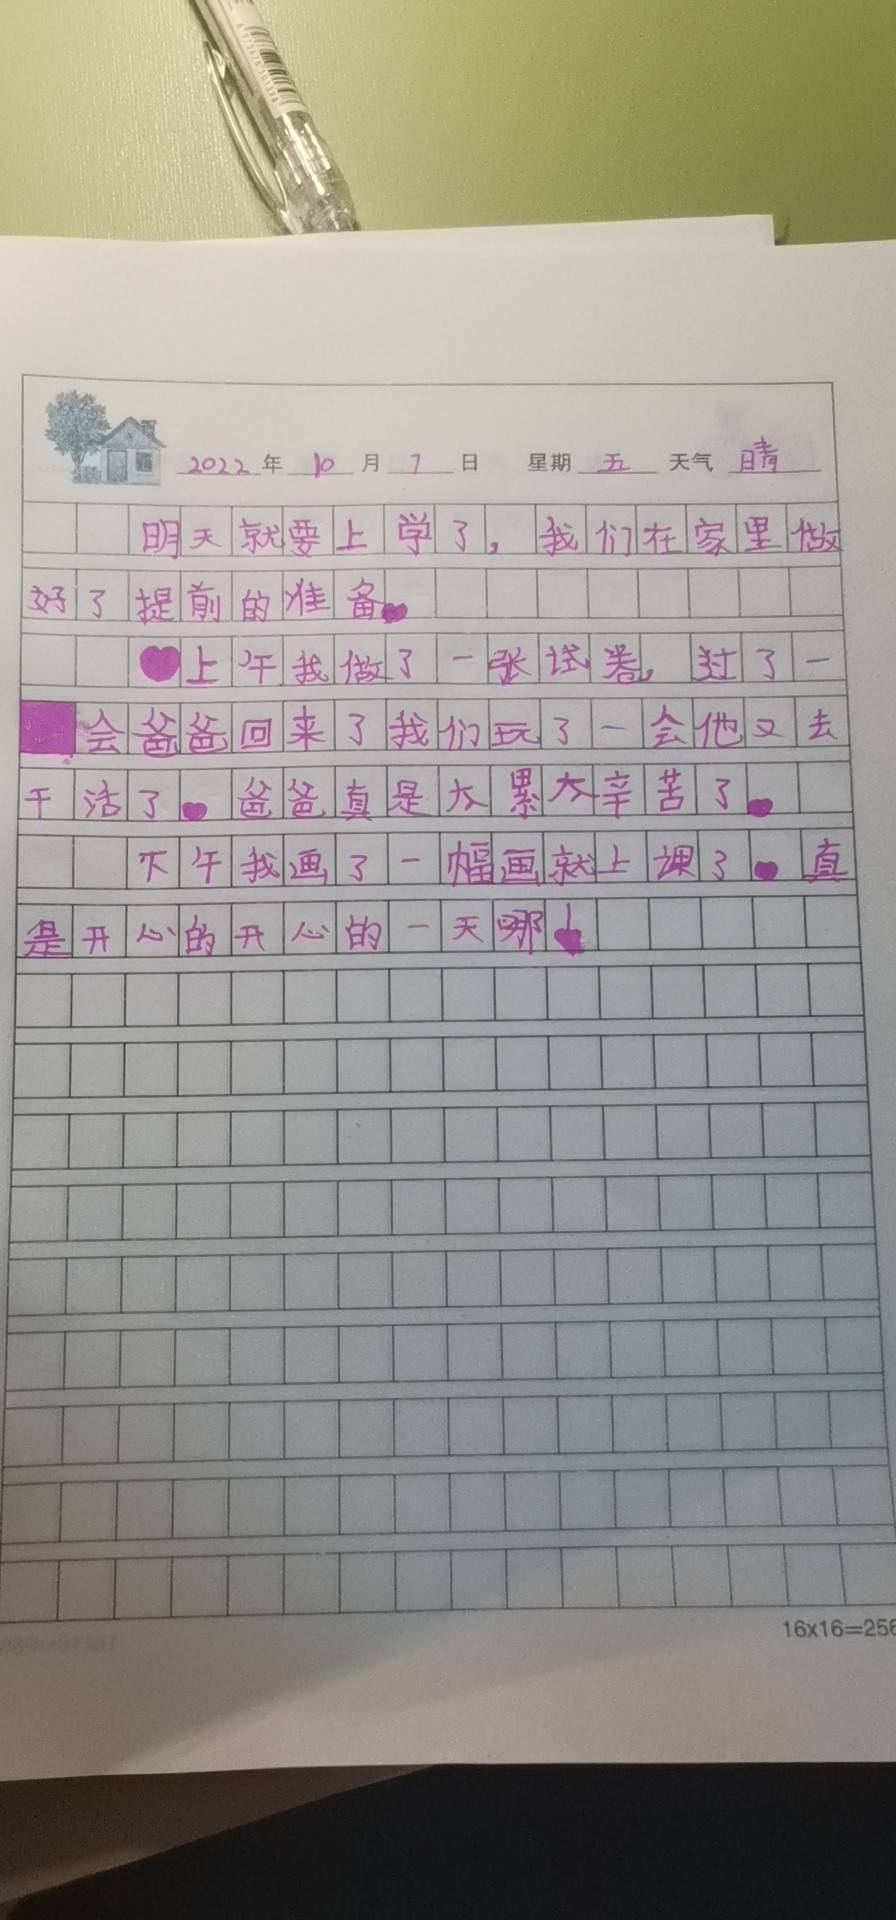 2022年10月7日 星期五 天气晴
明天就要上学了，我们在家里做
好了提前的准备
上午我做了一张试卷，过了一
会爸爸回来了我们玩了一会他又去
干活了 爸爸真是太累太辛苦了
下午我画了一幅画就上课了 真
是开心的开心的一天哪
16x16=256